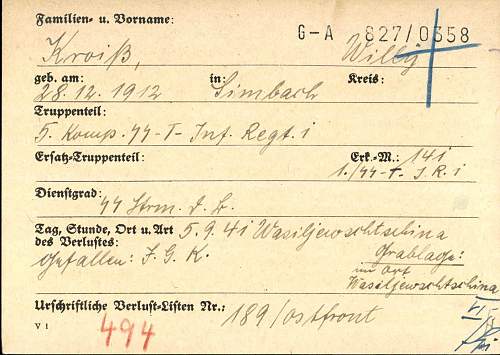 Familien- u. Vorname:
G-A 827/0358
Kroiß, Willy
geb. am: in: Kreis:
28.12.1912 Simbach
Truppenteil:
5. Komp. SS-T-Inf. Regt. 1
Ersatz-Truppenteil: Erk.-M.: 141
1./SS-T. I.R. 1
Dienstgrad:
SS Strm. d. R.
Tag, Stunde, Ort u. Art 5.9.41 Wasiljewschtschina
des Verlustes: Grablage:
Gefallen: I.G.K. im Ort
Wasiljewschtschina
Urschriftliche Verlust-Listen Nr.: 189/Ostfront
V 1 494